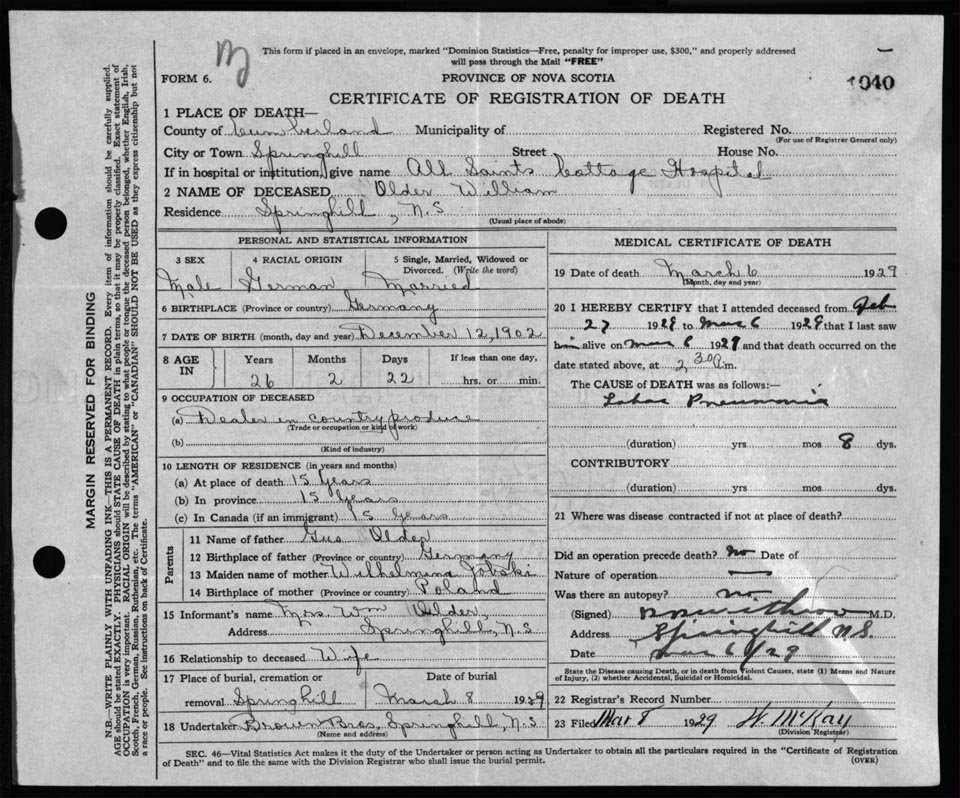 This form if placed in an envelope, marked "Dominion Statistics—Free, penalty for improper use, $300," and properly addressed
will pass through the Mail "FREE"
FORM 6.
PROVINCE OF NOVA SCOTIA
1040
CERTIFICATE OF REGISTRATION OF DEATH
1 PLACE OF DEATH—
County of Cumberland Municipality of Registered No.
(For use of Registrar General only)
City or Town Springhill Street House No.
If in hospital or institution, give name All Saints Cottage Hospital
2 NAME OF DECEASED Older William
Residence Springhill, N.S
(Usual place of abode)
PERSONAL AND STATISTICAL INFORMATION
3 SEX 4 RACIAL ORIGIN 5 Single, Married, Widowed or Divorced. (Write the word)
Male German Married
6 BIRTHPLACE (Province or country) Germany
7 DATE OF BIRTH (month, day and year) December 12, 1902
8 AGE IN Years Months Days If less than one day,
26 2 22 hrs. or min.
9 OCCUPATION OF DECEASED
(a) Dealer in country produce
(Trade or occupation or kind of work)
(b)
(Kind of industry)
10 LENGTH OF RESIDENCE (in years and months)
(a) At place of death 15 Years
(b) In province 15 Years
(c) In Canada (if an immigrant) 15 Years
Parents
11 Name of father Gus Older
12 Birthplace of father (Province or country) Germany
13 Maiden name of mother Wilhelmina
14 Birthplace of mother (Province or country) Poland
15 Informant's name Mrs. Wm Older,
Address Springhill, N.S.
16 Relationship to deceased Wife
17 Place of burial, cremation or Date of burial
removal Springhill March 8 1929
18 Undertaker Brown Bros, Springhill, N.S.
(Name and address)
MEDICAL CERTIFICATE OF DEATH
19 Date of death March 6 1929
(Month, day and year)
20 I HEREBY CERTIFY that I attended deceased from Feb
27 1929 to Mar 6 1929 that I last saw
him alive on Mar 6 1929 and that death occurred on the
date stated above, at 2 30 a m.
The CAUSE of DEATH was as follows:—
Lobar Pneumonia
(duration) yrs mos 8 dys.
CONTRIBUTORY
(duration) yrs mos dys.
21 Where was disease contracted if not at place of death?
Did an operation precede death? no Date of
Nature of operation —
Was there an autopsy? no
(Signed) M.D.
Address Springhill N.S.
Date Mar 6/29
State the Disease causing Death, or in death from Violent Causes, state (1) Means and Nature
of Injury, (2) whether Accidental, Suicidal or Homicidal.
22 Registrar's Record Number
23 Filed Mar 8 1929 W. McKay
(Division Registrar)
SEC. 46—Vital Statistics Act makes it the duty of the Undertaker or person acting as Undertaker to obtain all the particulars required in the "Certificate of Registration
of Death" and to file the same with the Division Registrar who shall issue the burial permit.
(OVER)
MARGIN RESERVED FOR BINDING
N.B.—WRITE PLAINLY WITH UNFADING INK—THIS IS A PERMANENT RECORD. Every item of information should be carefully supplied.
AGE should be stated EXACTLY. PHYSICIANS should STATE CAUSE OF DEATH in plain terms, so that it may be properly classified. Exact statement of
OCCUPATION is very important. RACIAL ORIGIN will be described by stating to what people or tongue the deceased person belonged, whether English, Irish,
Scotch, French, German, Russian, Ruthenian, etc. The terms "AMERICAN" or "CANADIAN" SHOULD NOT BE USED as they express citizenship but not
a race or people. See instructions on back of Certificate.